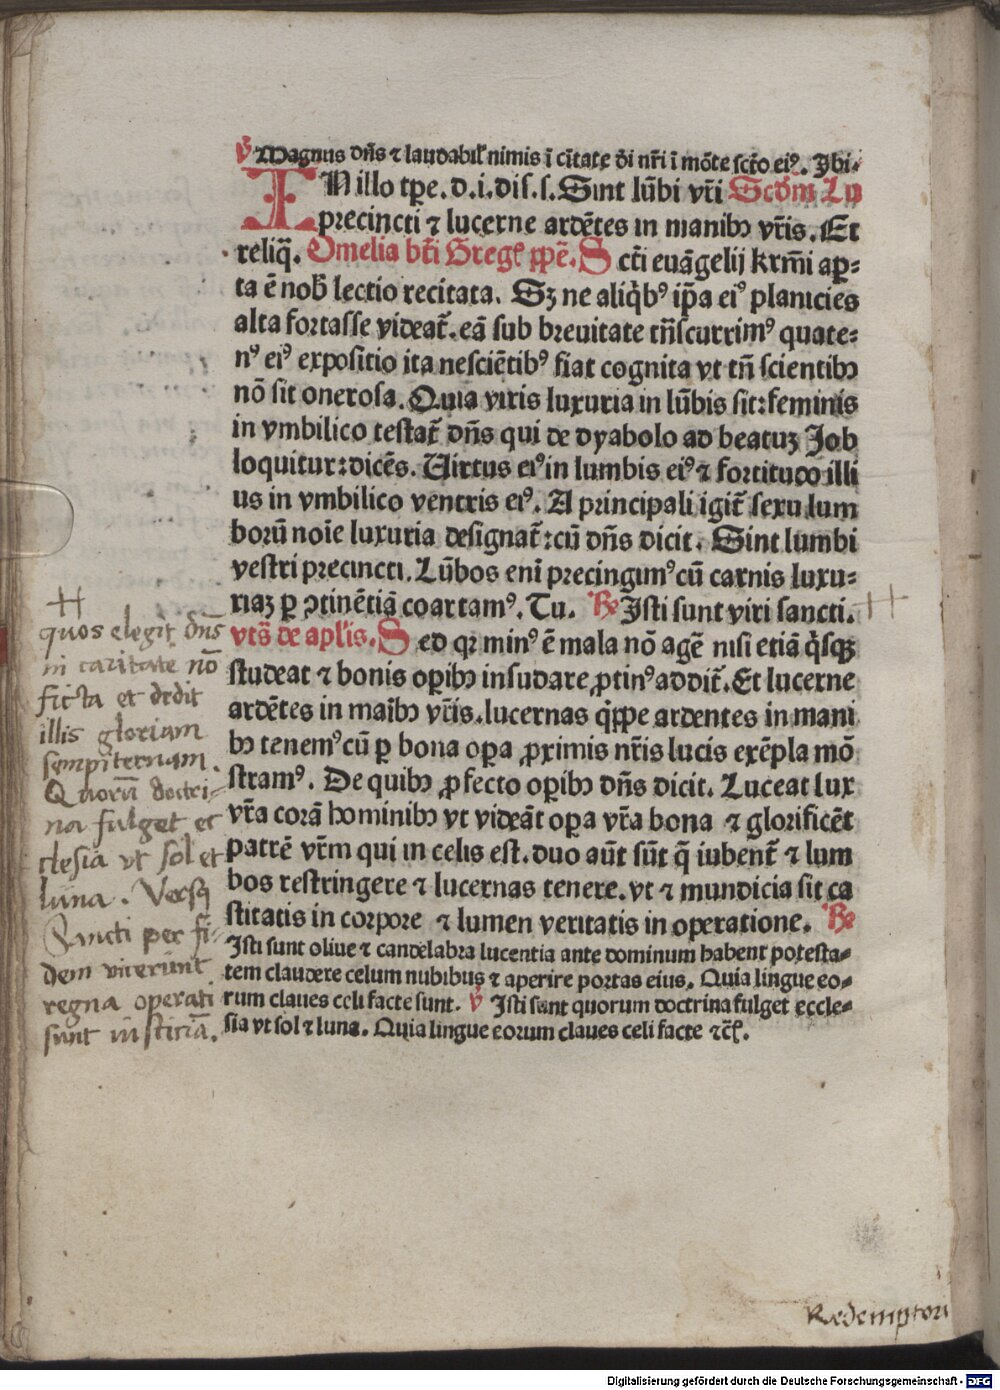 v̄ Magnus dn̄s ⁊ laudabil' nimis ī cītate dī nr̄i ī mōte sctō ei⁹. Ibi.
IN illo tp̄e. d. i. dis. s. Sint lūbi vr̄i Scd̄m Lu
precincti ⁊ lucerne ardētes in manibꝫ vr̄is. Et
reliq̄. Omelia bt̄i Greg' pp̄e. Sct̄i euāgelij kr̄mi ap̄=
ta ē nob̄ lectio recitata. Sꝫ ne aliq̇b⁹ ip̄a ei⁹ planicies
alta fortasse videat̄. eā sub breuitate tn̄scurrim⁹ quate=
n⁹ ei⁹ expositio ita nesciētib⁹ fiat cognita vt tn̄ scientibꝫ
nō sit onerosa. Quia viris luxuria in lūbis sit: feminis
in vmbilico testat̄ dn̄s qui de dyabolo ad beatuꝫ Job
loquitur: dicēs. Uirtus ei⁹ in lumbis ei⁹ ⁊ fortitudo illi
us in vmbilico ventris ei⁹. A principali igit̄ sexu lum
borū noīe luxuria designat̄: cū dn̄s dicit. Sint lumbi
vestri precincti. Lūbos eni precingim⁹ cū carnis luxu=
riaꝫ ꝑ ↄtinētiā coartam⁹. Tu. ℟ Isti sunt viri sancti.
vts̄ de apl̄is. Sed qꝛ min⁹ ē mala nō agē nisi etiā q̇sqꝫ
studeat ⁊ bonis oꝑibꝫ insudare ꝓtin⁹ addit̄. Et lucerne
ardētes in maībꝫ vr̄is. lucernas q̇ppe ardentes in mani
bꝫ tenem⁹ cū ꝑ bona oꝑa ꝓximis nr̄is lucis exēpla mō
stram⁹. De quibꝫ ꝓfecto oꝑibꝫ dn̄s dicit. Luceat lux
vr̄a corā hominibꝫ vt videāt oꝑa vr̄a bona ⁊ glorificēt
patrē vr̄m qui in celis est. duo aūt sūt q̄ iubent̄ ⁊ lum
bos restringere ⁊ lucernas tenere. vt ⁊ mundicia sit ca
stitatis in corpore ⁊ lumen veritatis in operatione. ℟
Isti sunt oliue ⁊ candelabra lucentia ante dominum habent potesta=
tem claudere celum nubibus ⁊ aperire portas eius. Quia lingue eo=
rum claues celi facte sunt. v̄ Isti sunt quorum doctrina fulget eccle=
sia vt sol ⁊ luna. Quia lingue eorum claues celi facte ⁊c̄.
quos elegit dn̄s
in caritate nō
ficta et dedit
illis gloriam
sempiternam.
Quorū doctri-
na fulget ec
clesia vt sol et
luna. Versꝗ
Sancti per fi-
dem vicerunt
regna operati
sunt iusticiā.
Redemptori
Digitalisierung gefördert durch die Deutsche Forschungsgemeinschaft - DFG